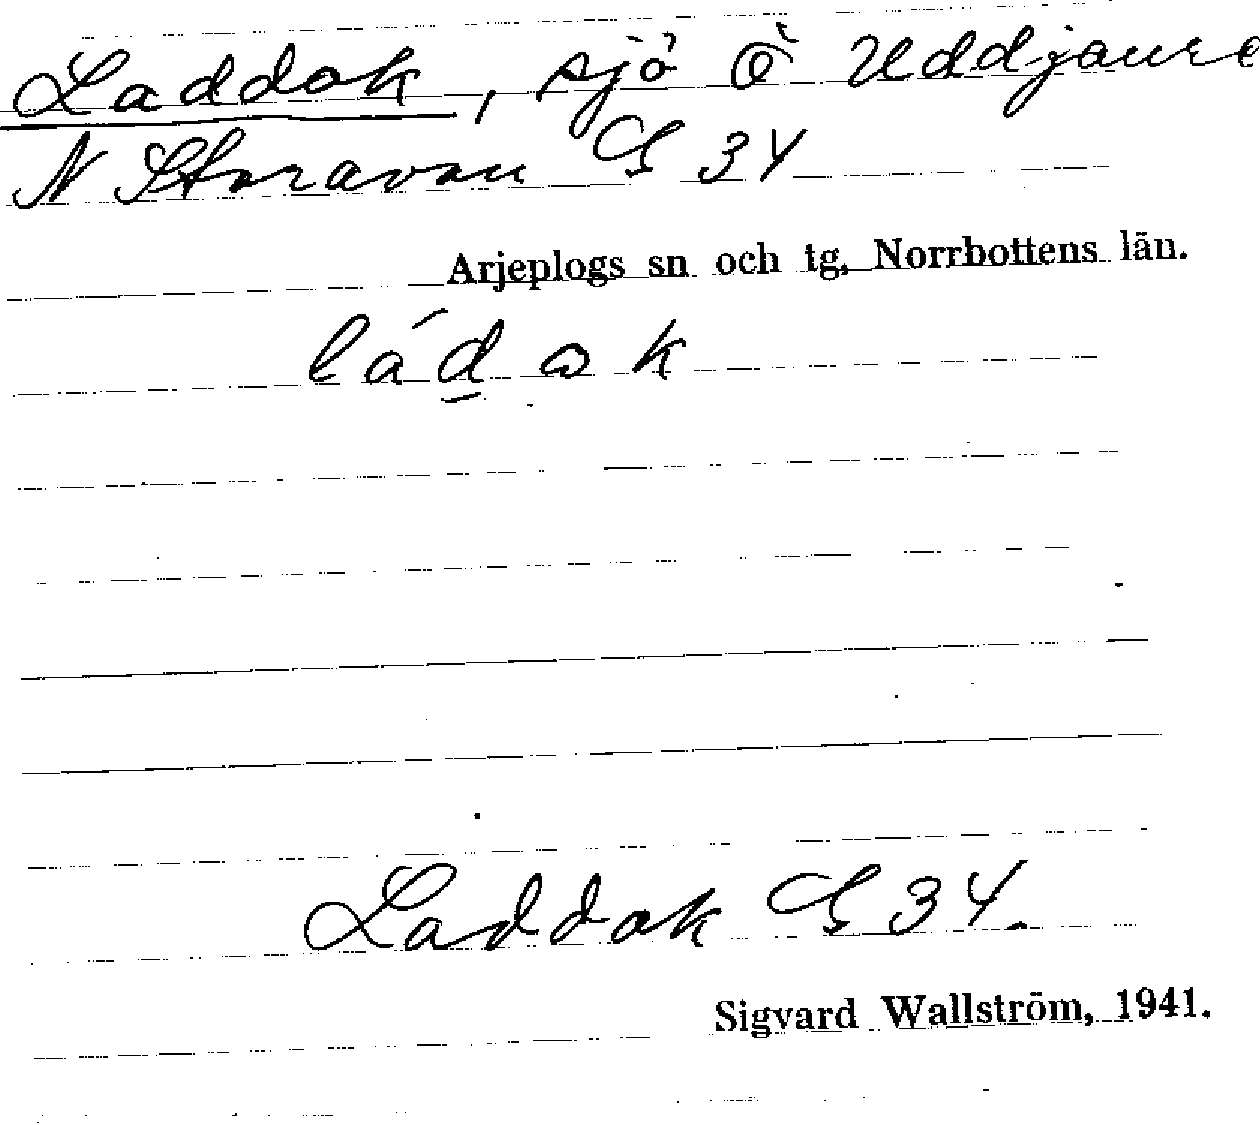 Laddok, sjö Ö Uddjaure
N Storavan G 34
Arjeplogs sn och tg, Norrbottens län.
lád̲ ɷ k
Laddok G 34.
Sigvard Wallström, 1941.